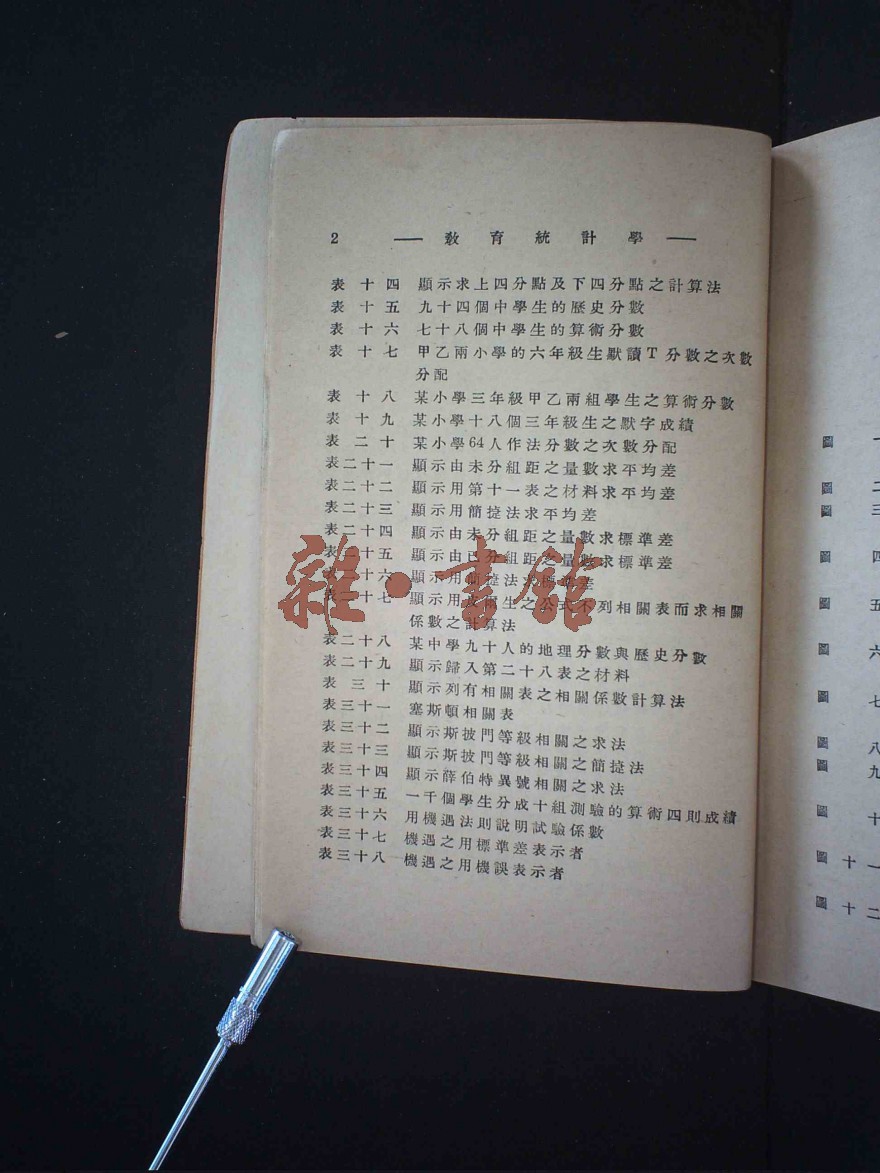 2 —— 教育統計學 ——
表十四 顯示求上四分點及下四分點之計算法
表十五 九十四個中學生的歷史分數
表十六 七十八個中學生的算術分數
表十七 甲乙兩小學的六年級生默讀T分數之次數
分配
表十八 某小學三年級甲乙兩組學生之算術分數
表十九 某小學十八個三年級生之默字成績
表二十 某小學64人作法分數之次數分配
表二十一 顯示由未分組距之量數求平均差
表二十二 顯示用第十一表之材料求平均差
表二十三 顯示用簡捷法求平均差
表二十四 顯示由未分組距之量數求標準差
表二十五 顯示由已分組距之量數求標準差
表二十六 顯示用簡捷法求標準差
表二十七 顯示用皮爾生之公式不列相關表而求相關
係數之計算法
表二十八 某中學九十人的地理分數與歷史分數
表二十九 顯示歸入第二十八表之材料
表三十 顯示列有相關表之相關係數計算法
表三十一 塞斯頓相關表
表三十二 顯示斯披門等級相關之求法
表三十三 顯示斯披門等級相關之簡捷法
表三十四 顯示薛伯特異號相關之求法
表三十五 一千個學生分成十組測驗的算術四則成績
表三十六 用機遇法則說明試驗係數
表三十七 機遇之用標準差表示者
表三十八 機遇之用機誤表示者
雜·書館
圖 一
圖 二
圖 三
圖 四
圖 五
圖 六
圖 七
圖 八
圖 九
圖 十
圖十一
圖十二